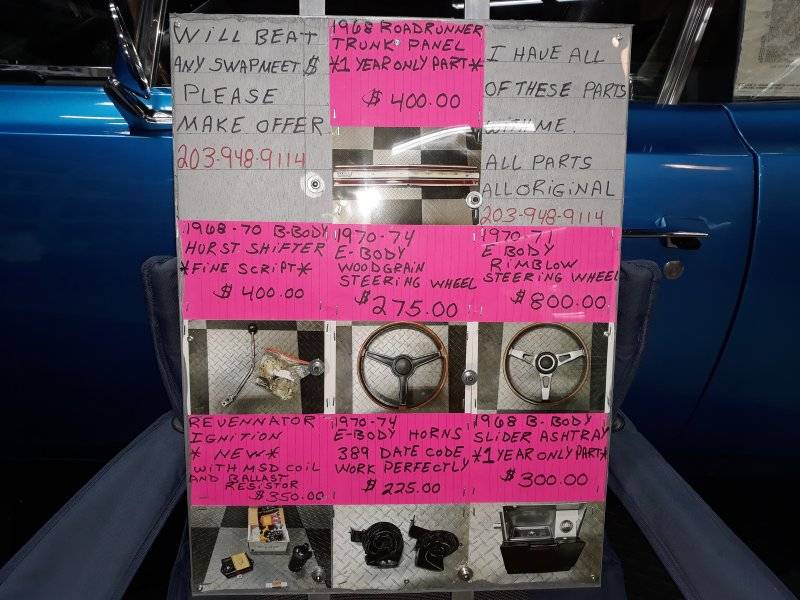 WILL BEAT
ANY SWAPMEET $
PLEASE
MAKE OFFER
203-948-9114
1968 ROADRUNNER
TRUNK PANEL
*1 YEAR ONLY PART*
$400.00
I HAVE ALL
OF THESE PARTS
WITH ME.
ALL PARTS
ALL ORIGINAL
203-948-9114
1968-70 B-BODY
HURST SHIFTER
*FINE SCRIPT*
$400.00
1970-74
E-BODY
WOODGRAIN
STEERING WHEEL
$275.00
1970-71
E BODY
RIMBLOW
STEERING WHEEL
$800.00
REVENNATOR
IGNITION
*NEW*
WITH MSD COIL
AND BALLAST
RESISTOR
$350.00
1970-74
E-BODY HORNS
389 DATE CODE
WORK PERFECTLY
$225.00
1968 B-BODY
SLIDER ASHTRAY
*1 YEAR ONLY PART*
$300.00